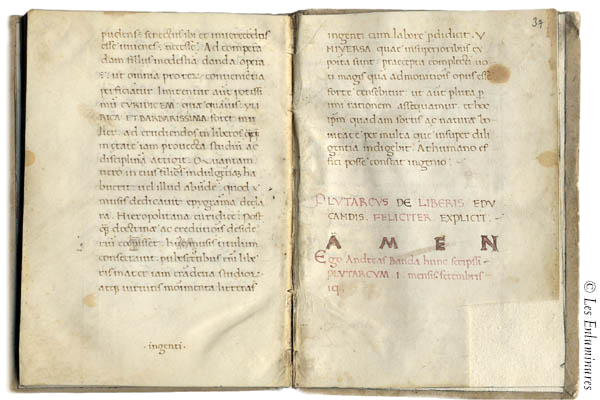 pudens: senectusibi et iuuerecordes
esse iuuenes necesse. Ad compera
dam filius modestia danda opera
ut omnia protea conuenientia
perficiatur. Imitentur aut potissi
mũ EVRIDICEM quæ quauis YLI
RICA ET BARBARISSIMA foret mu
lier. ad erudiendos tñ liberos
in etate iam prouecta studiũ ac
disciplinã attigit. Quantam
uero in eius filios indulgentias ha
buerit uel illud abunde. quod
musis dedicauit epygrama decla
ra. Hieropolitana euridice. Post
doctrinæ ac eruditionis deside
riũ musis titulum
consecrauit. pubescentibus enĩ libe
ris mater iam grandeua studiorũ
atq; uirtutis monimenta litteras
·ingenti·
34
ingenti cum labore pdidicit. V
NIVERSA quae insuperioribus ex
posita sunt praecepta complecti uo
ti magis qua admonitionis opus esse
forte censebitur. ut aut plura p
imi rationem assequamur. et hoc
ipm quadam sortis ac naturæ bo
nitate per multa quæ insuper dili
gentia indigebit. At humano ef
fici posse constat ingenio:
PLVTARCVS DE LIBERIS EDV
CANDIS. FELICITER EXPLICIT.
AMEN
Ego Andreas Banda hunc scripsi
PLVTARCVM 1. mensis settenbris
© Les Enluminures